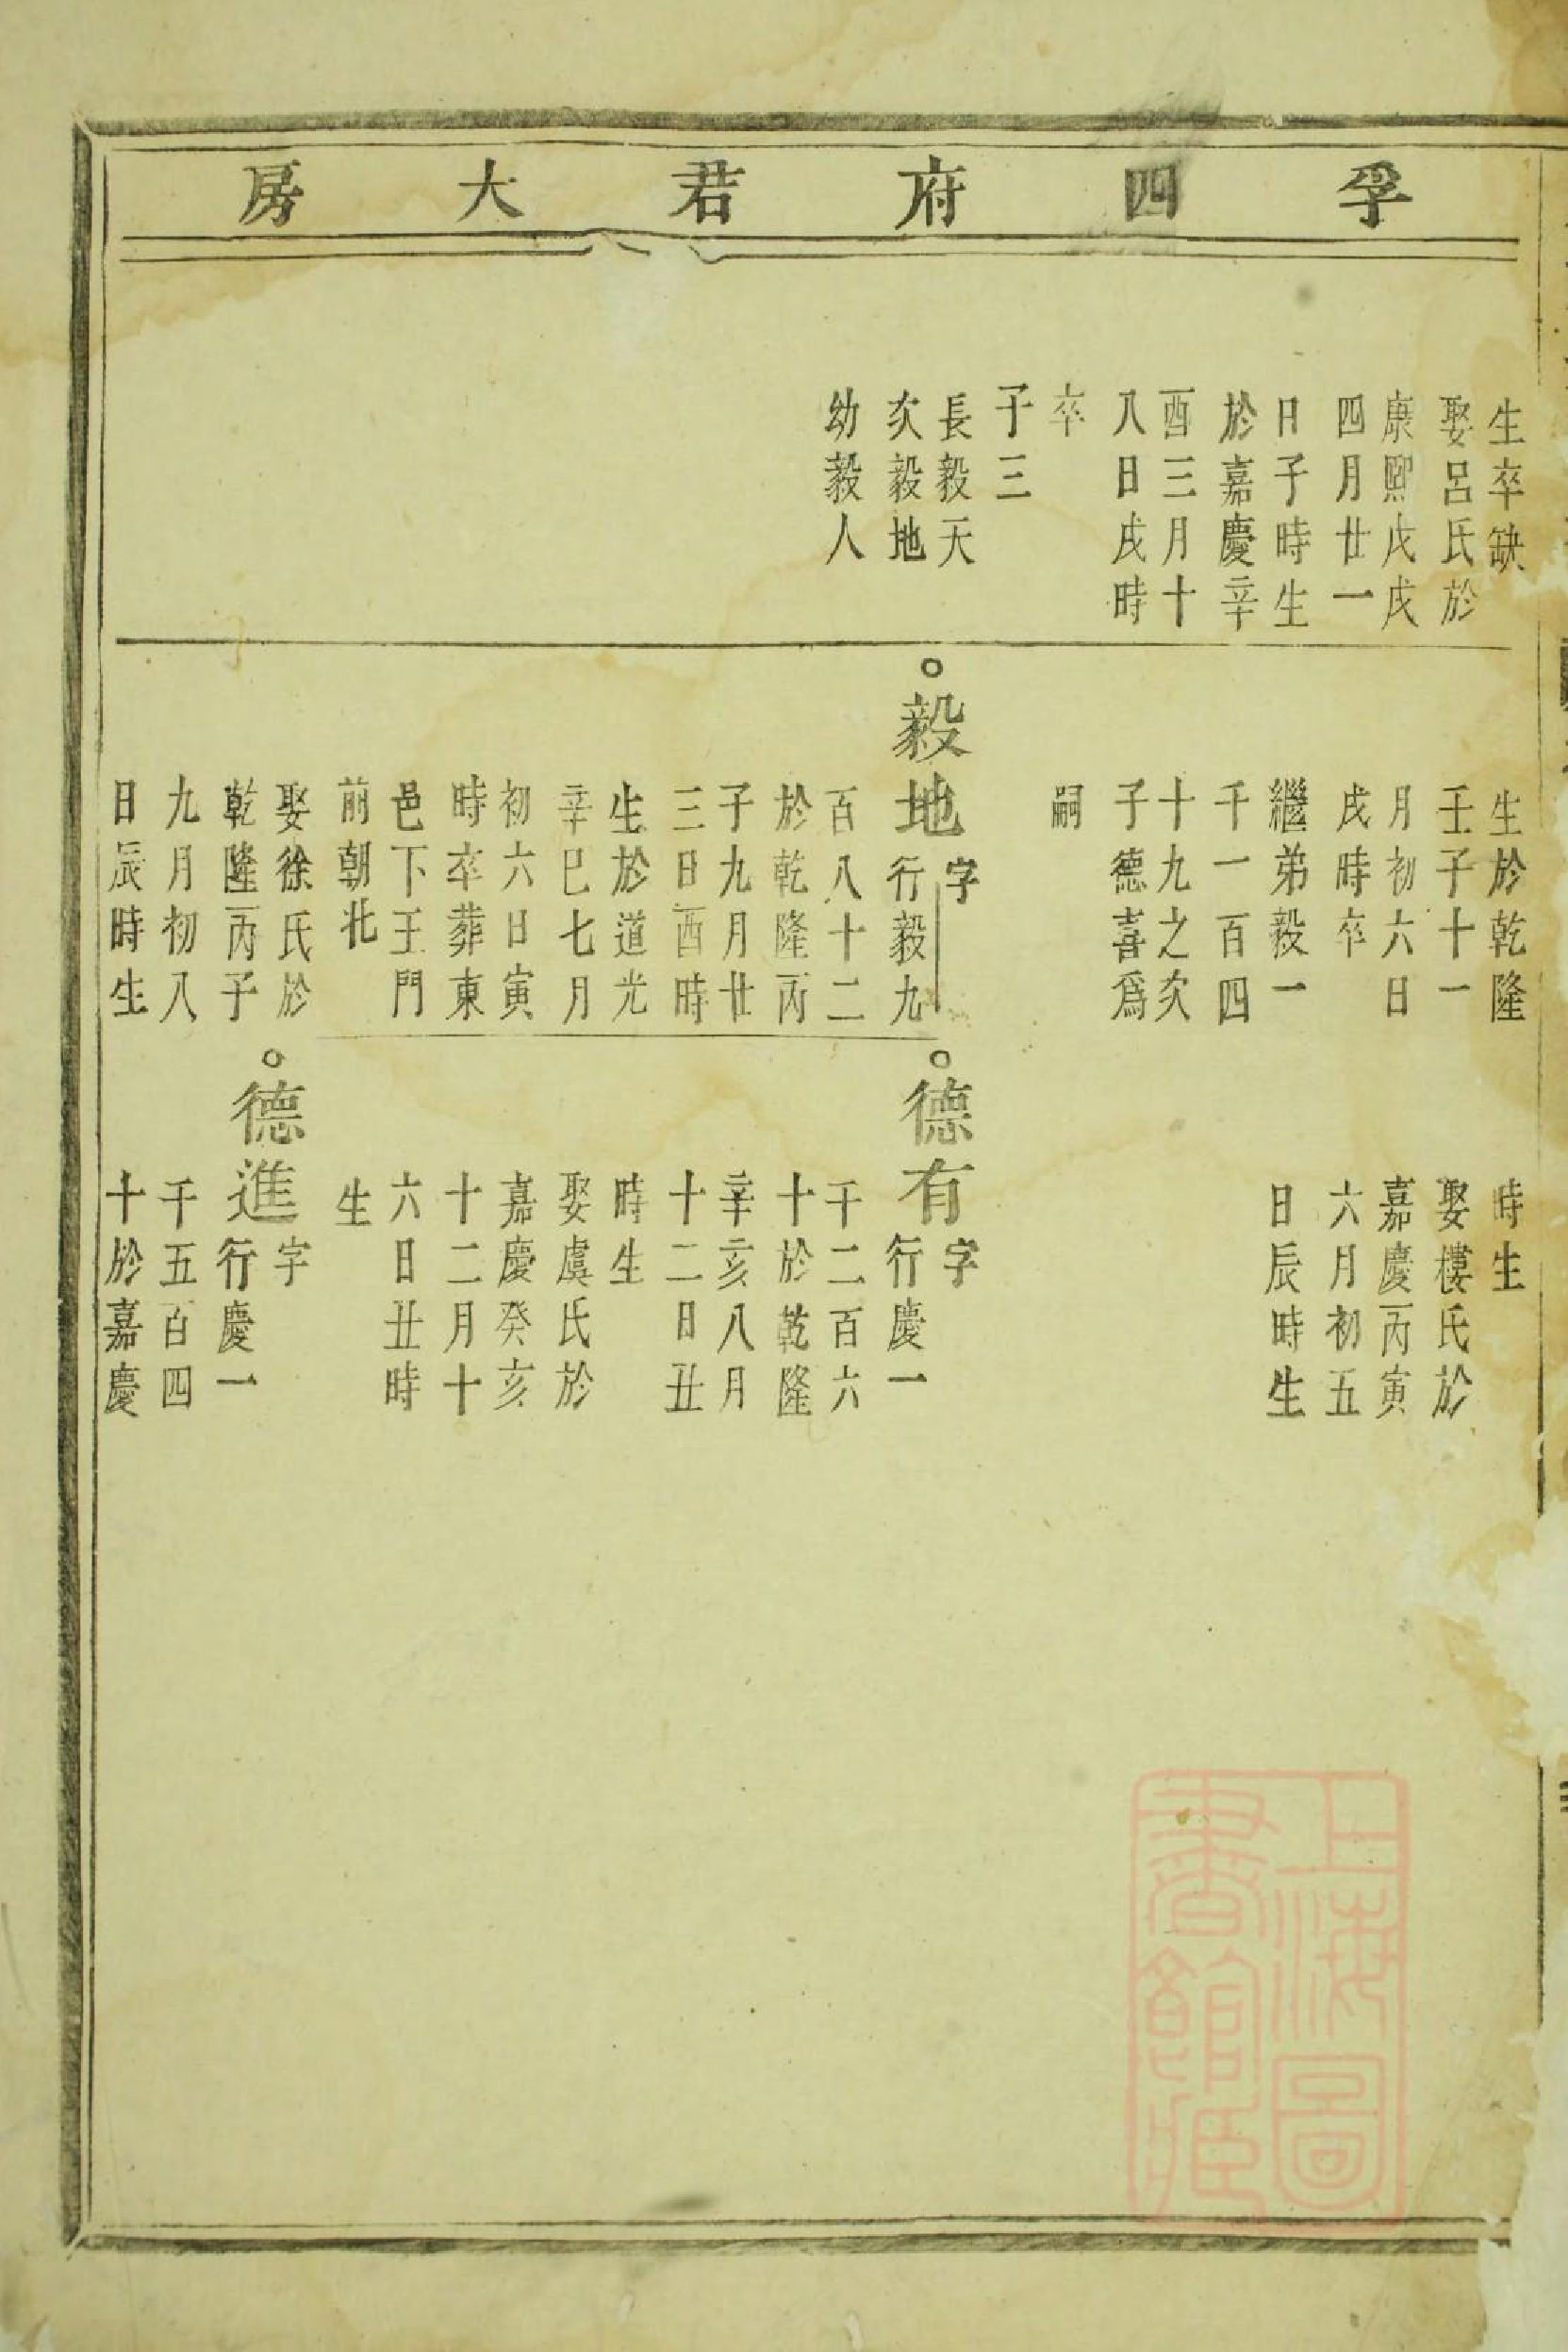 孚四府君大房
生卒缺
娶呂氏於
康熙戊戌
四月廿一
日子時生
於嘉慶辛
酉三月十
八日戌時
卒
子三
長毅天
次毅地
幼毅人
生於乾隆
壬子十一
月初六日
戌時卒
繼弟毅一
千一百四
十九之次
子德喜為
嗣
毅地字
行毅九
百八十二
於乾隆丙
子九月廿
三日酉時
生於道光
辛巳七月
初六日寅
時卒葬東
邑下王門
前朝北
娶徐氏於
乾隆丙子
九月初八
日辰時生
時生
娶樓氏於
嘉慶丙寅
六月初五
日辰時生
德有字
行慶一
千二百六
十於乾隆
辛亥八月
十二日丑
時生
娶虞氏於
嘉慶癸亥
十二月十
六日丑時
生
德進字
行慶一
千五百四
十於嘉慶
上海圖
書館藏